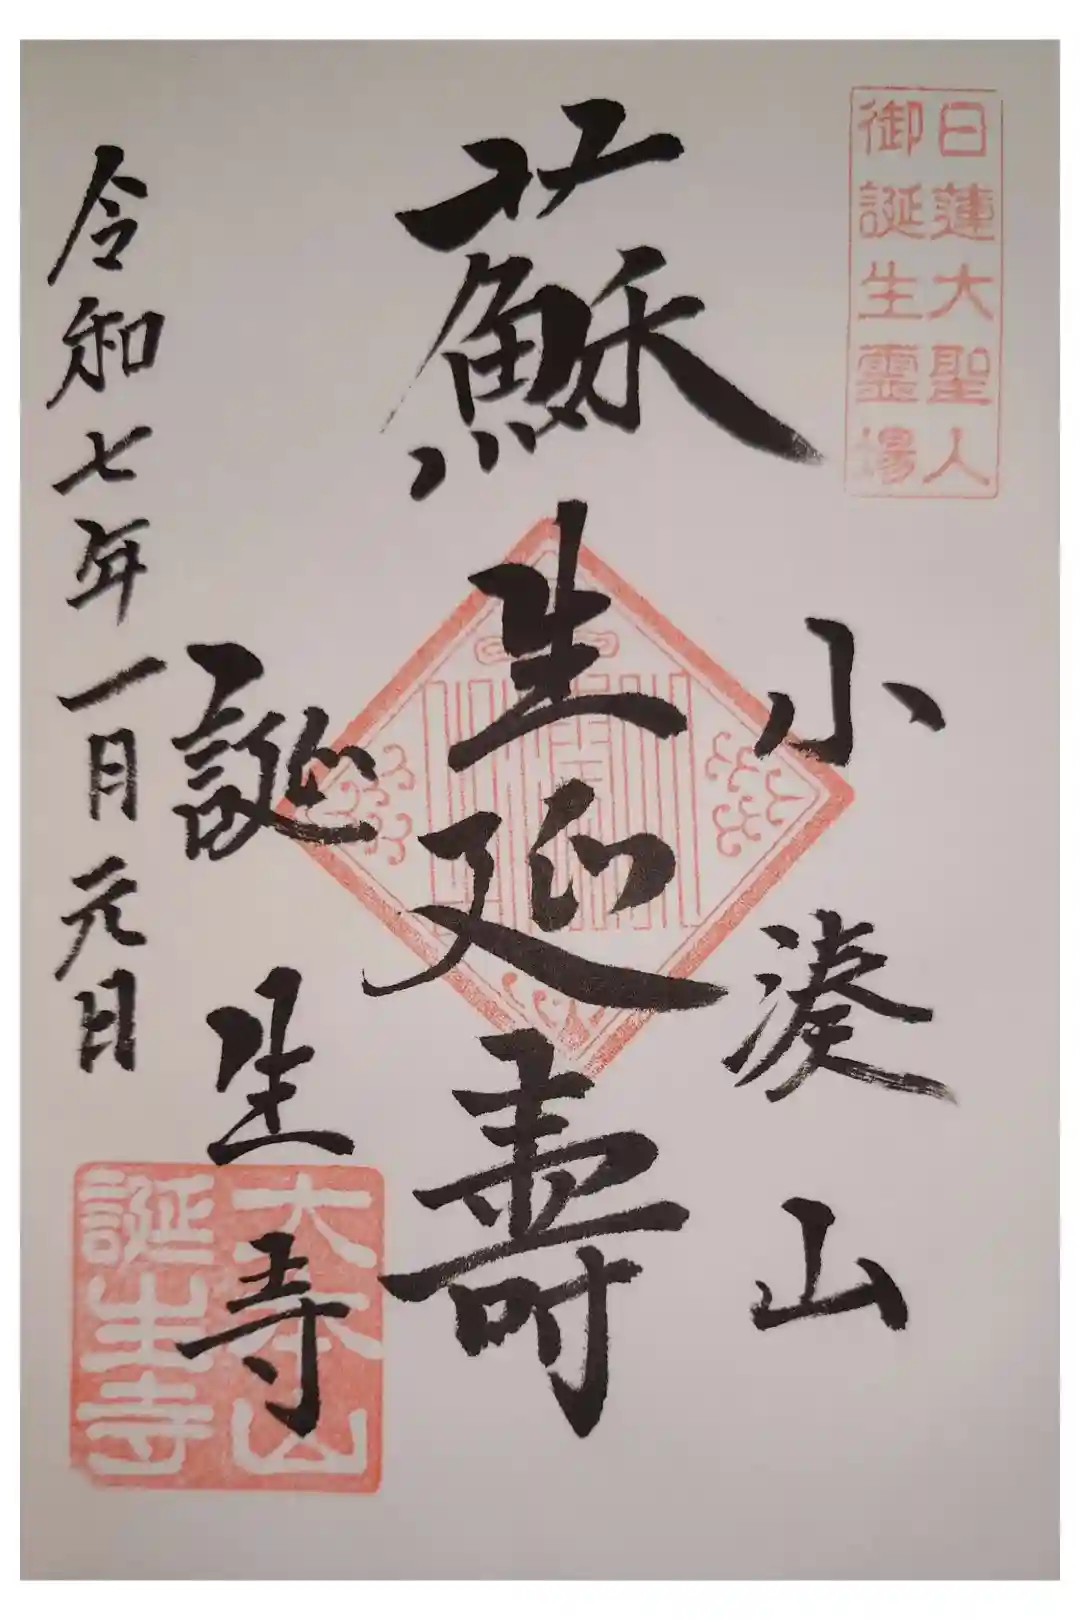 日蓮大聖人
御誕生霊場
小湊山
蘓生延壽
誕生寺
大本山
誕生寺
令和七年一月元日